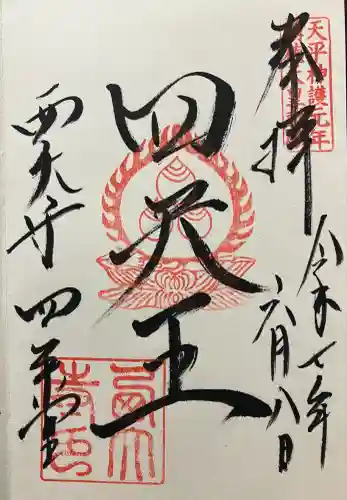 奉拝
天平神護元年
令和七年
六月八日
四天王
西大寺 四王堂
西大寺印